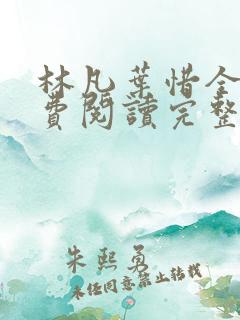 林凡葉惜全
費閱讀完整
朱熙勇
未經同意禁止转载